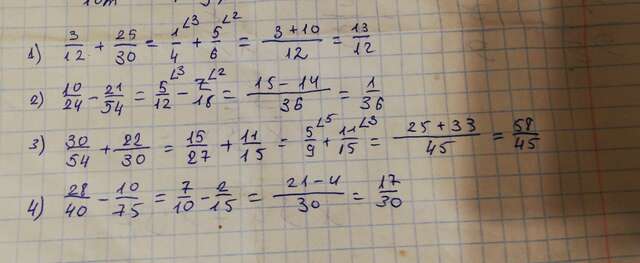 1) 3/12 + 25/30 = 1/4 ∠3 + 5/6 ∠2 = 3+10/12 = 13/12
2) 10/24 - 21/54 = 5/12 ∠3 - 7/18 ∠2 = 15-14/36 = 1/36
3) 30/54 + 22/30 = 15/27 + 11/15 = 5/9 ∠5 + 11/15 ∠3 = 25+33/45 = 58/45
4) 28/40 - 10/75 = 7/10 - 2/15 = 21-4/30 = 17/30